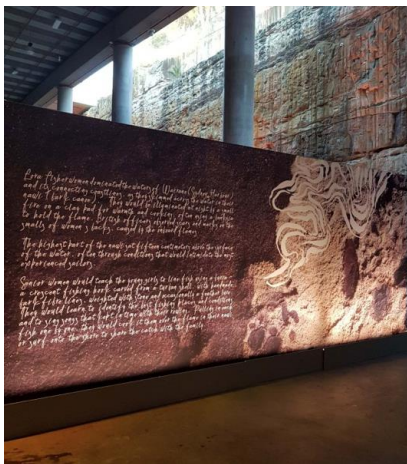 Eora fisherwomen dominated the waters of Warrane (Sydney Harbour)
and its connecting coastlines, as they skimmed across the water in their
nawi (bark canoe). They would be illuminated at night by a small
fire on a clay bed for warmth and cooking, often using a
to hold the flame. British officers observed scars and marks on the
smalls of women's backs, caused by the onboard flames.
The highest part of the nawi sat fifteen centimetres with the surface
of the water, often through conditions that would intimidate the most
experienced sailors.
Senior women would teach the young girls to line fish using a burra -
a crescent fishing hook carved from a turban shell, with handmade
bark fibre lines, weighted with stone and occasionally a feather lure.
They would learn to identify the best fishing places and conditions
and to sing songs that kept in time with their rowing. Pulling in one
fish one by one, they would cook it then over the flame in their nawi
or surf onto the shore to share the catch with the family.